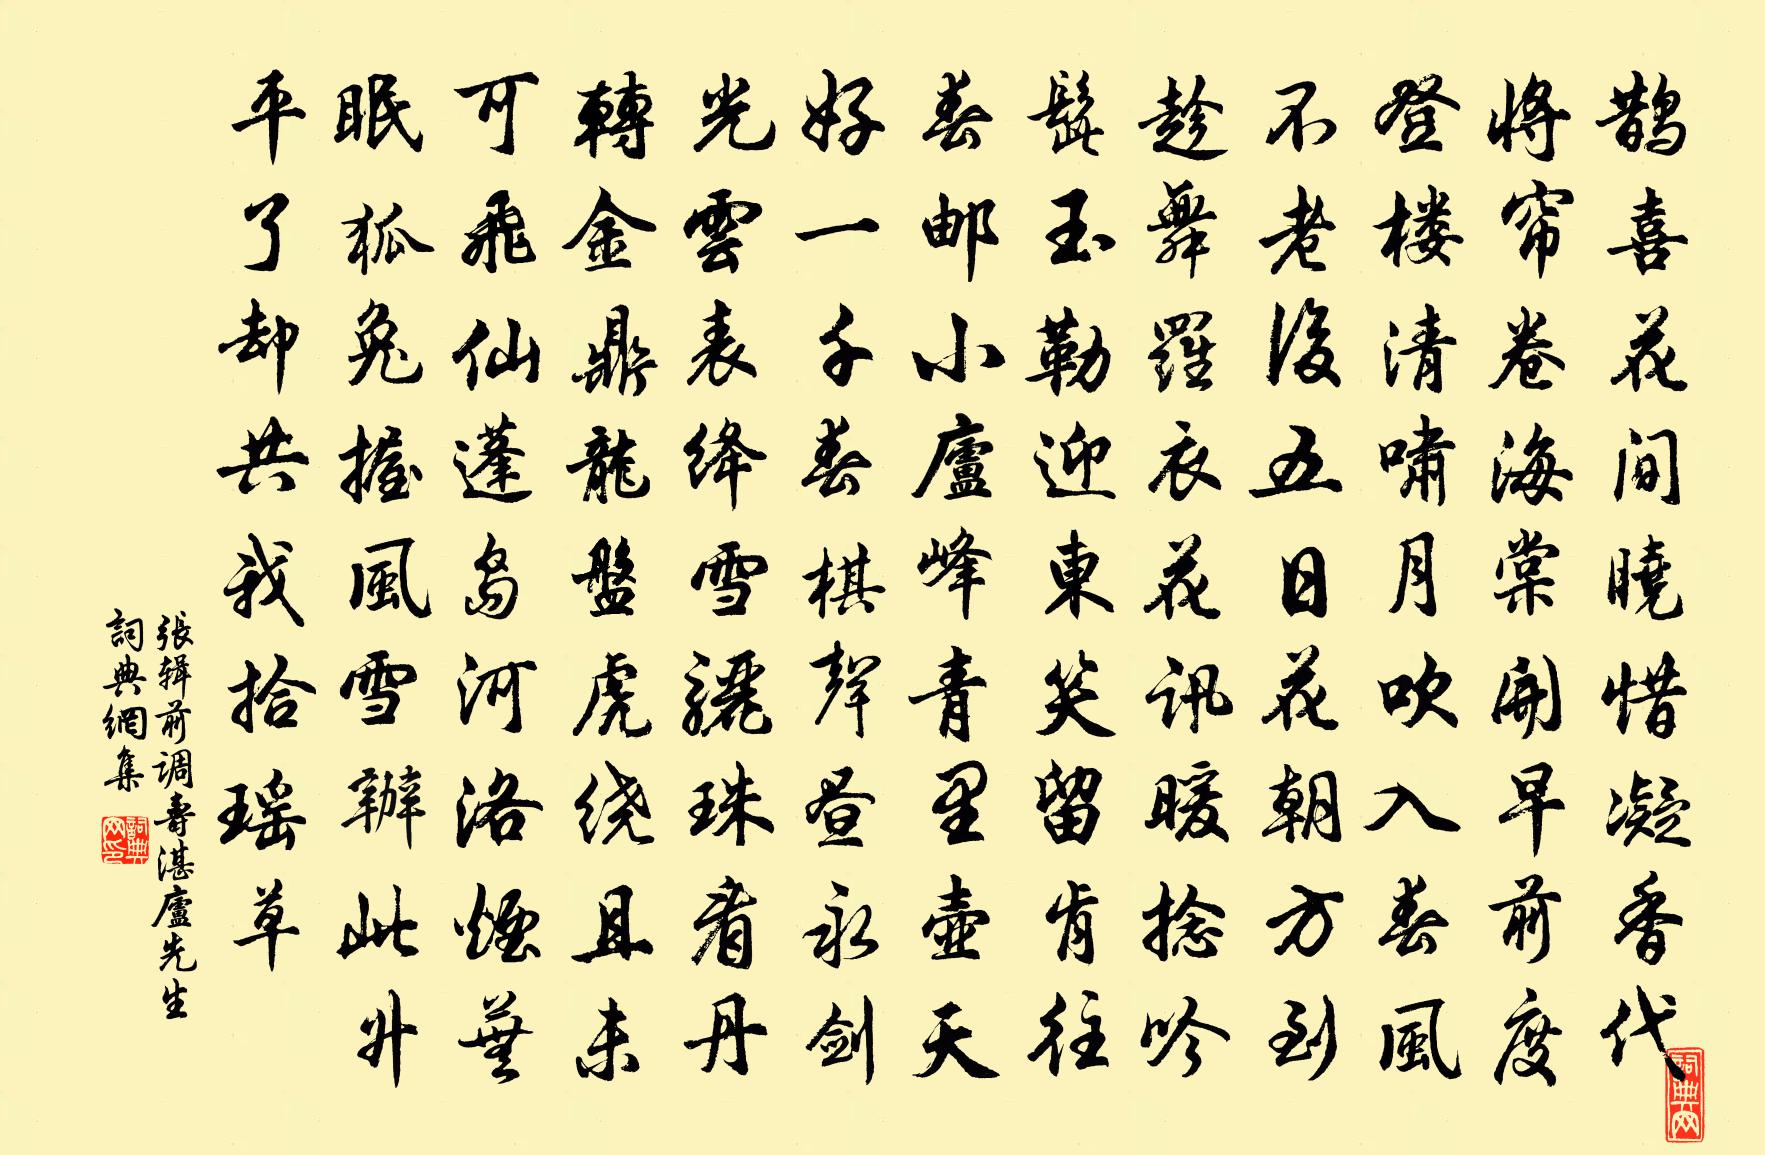 鵲喜花间曉惜凝香代
將帘卷海棠開早前度
登楼清嘯月吹入春風
不老後五日花朝方到
趁舞羅衣花訊暖捻吟
髭玉勒迎東笑留肯往
春邮小廬峰青里壺天
好一千春棋聲昼永剑
光雲表绛雪驪珠看丹
轉金鼎龍盤虎绕且未
可飛仙蓬岛河洛煙蕪
眠狐兔握風雪辦此升
平了却共我拾瑶草
張辑前调壽湛廬先生
詞典網集
詞典网印
詞典网